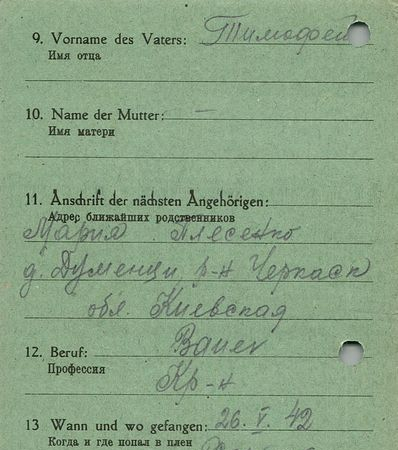 9. Vorname des Vaters: Тимофей
Имя отца
10. Name der Mutter: —
Имя матери
11. Anschrift der nächsten Angehörigen:
Адрес ближайших родственников
Мария Плесенко
д. Думенци р-н Черкаск
обл. Киевская
12. Beruf: Bauer
Профессия
Кр-н
13 Wann und wo gefangen: 26. V. 42
Когда и где попал в плен